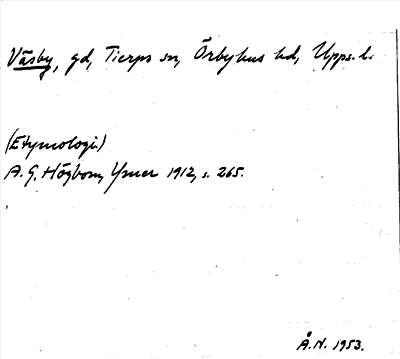 Väsby, gd, Tierps sn, Örbyhus hd, Upps. l.
(Etymologi)
A. G. Högbom, Ymer 1912, s. 265.
Å.N. 1953.